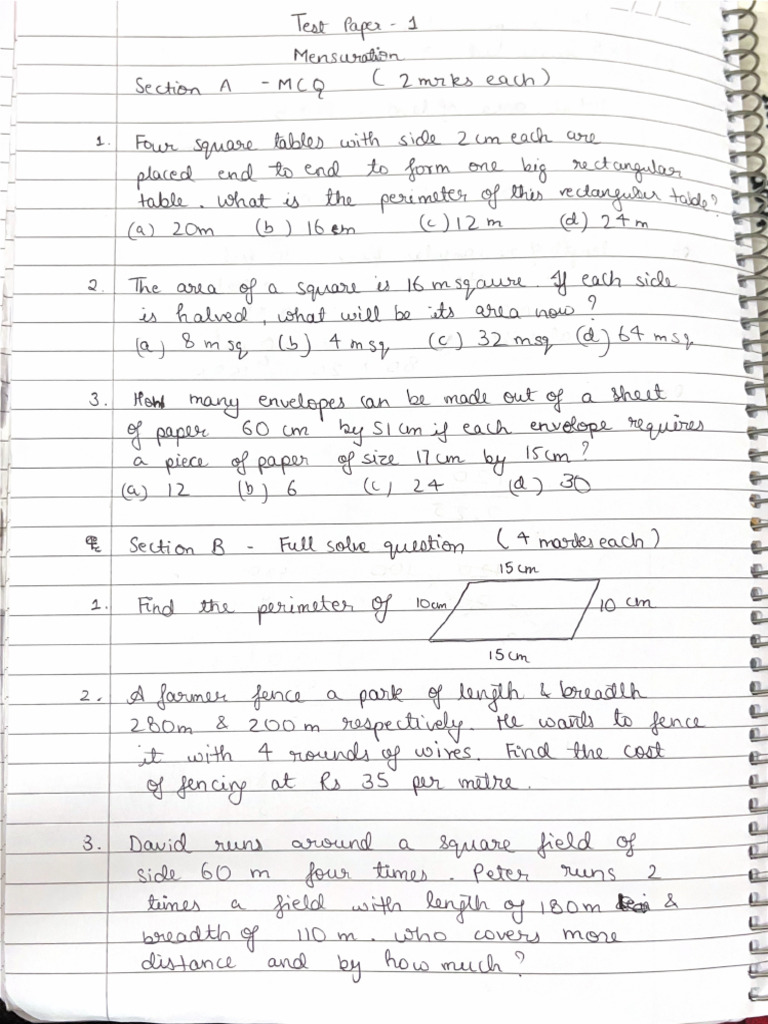 Test Paper - 1
Mensuration
Section A - MCQ ( 2 mrks each )
1. Four square tables with side 2 cm each are
placed end to end to form one big rectangular
table. What is the perimeter of this rectangular table?
(a) 20m (b) 16 cm (c) 12 m (d) 24 m
2. The area of a square is 16 m sqaure. If each side
is halved, what will be its area now?
(a) 8 m sq (b) 4 m sq (c) 32 msq (d) 64 m sq
3. How many envelopes can be made out of a sheet
of paper 60 cm by 51 cm if each envelope requires
a piece of paper of size 17 cm by 15 cm?
(a) 12 (b) 6 (c) 24 (d) 30
Section B - Full solve question ( 4 marks each )
15 cm
1. Find the perimeter of 10cm 10 cm
15 cm
2. A farmer fence a park of length & breadth
280m & 200 m respectively. He wants to fence
it with 4 rounds of wires. Find the cost
of fencing at Rs 35 per metre.
3. David runs around a square field of
side 60 m four times. Peter runs 2
times a field with length of 180m &
breadth of 110 m. who covers more
distance and by how much?